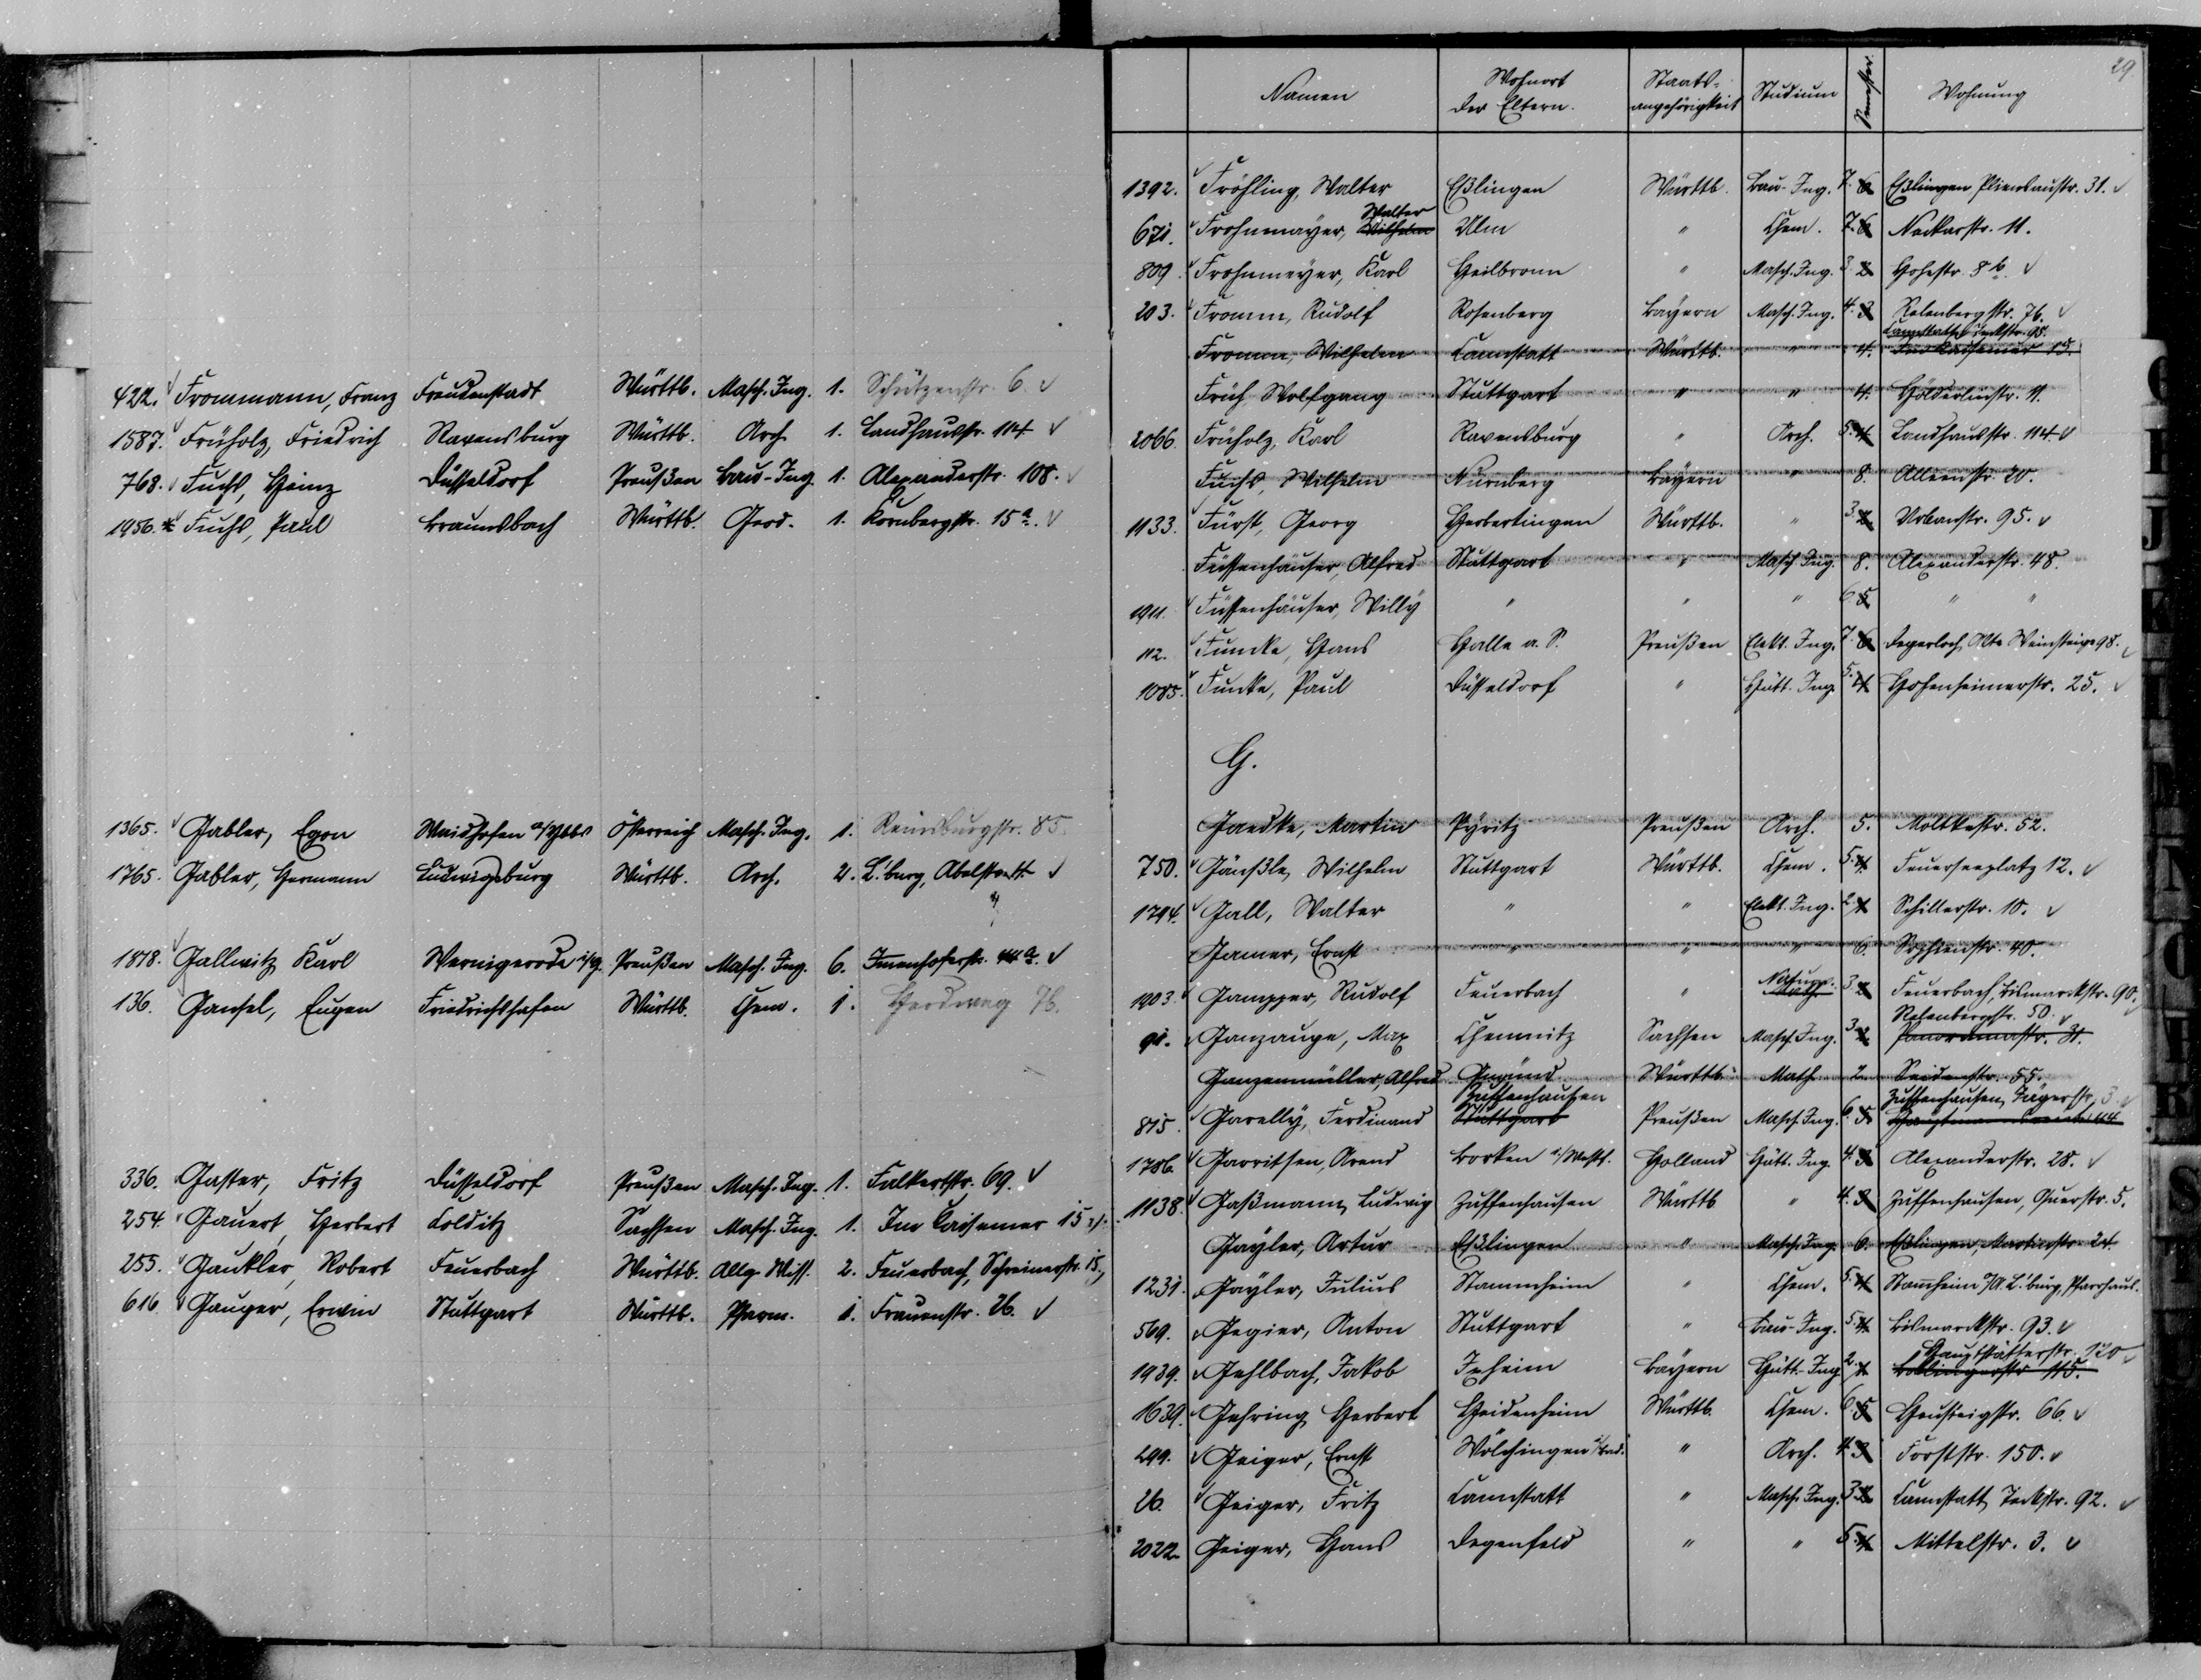 422. Frommann, Franz Freudenstadt Württb. Masch. Ing. 1. Schützenstr. 6.
1587. Früholz, Friedrich Ravensburg Württb. Arch. 1. Landhausstr. 114
768. Fuchs, Heinz Düsseldorf Preußen Bau-Ing. 1. Alexanderstr. 108.
1956. Fuchs, Paul Braunsbach Württb. Geod. 1. Kornbergstr. 15a.
1365. Gabler, Egon Waidhofen a/Ybbs Österreich Masch. Ing. 1. Reinsburgstr. 85
1765. Gabler, Hermann Ludwigsburg Württb. Arch. 2. L'burg, Abelstr.
1878. Gallwitz Karl Wernigerode Preußen Masch. Ing. 6. Immenhoferstr. 44a.
136. Gansel, Eugen Friedrichshafen Württb. Chem. 1. Herdweg 76.
336. Gaster, Fritz Düsseldorf Preußen Masch. Ing. 1. Falkertstr. 69.
254. Gauert, Herbert Colditz Sachsen Masch. Ing. 1. Im Kaisemer 15
255. Gaukler, Robert Feuerbach Württb. Allg. Wiss. 2. Feuerbach, Schreinerstr. 15
616. Gauger, Erwin Stuttgart Württb. Pharm. 1. Frauenstr. 26.
29.
Namen Wohnort der Eltern. Staats-angehörigkeit Studium Semester. Wohnung
1392. Fröhling, Walter Eßlingen Württb. Bau-Ing. 7. 6. Eßlingen Pliensaustr. 31.
Walter
671. Frohnmayer, Wilhelm Ulm " Chem. 7. 6. Neckarstr. 11.
809. Frohnmeyer, Karl Heilbronn " Masch. Ing. 3. 2. Hohestr. 8b.
203. Fromm, Rudolf Rosenberg Bayern Masch. Ing. 4. 3. Relenbergstr. 76.
Fromm, Wilhelm Cannstatt Württb. " 4. Im Kaisemer 15.
Früh Wolfgang Stuttgart " " 4. Hölderlinstr. 11.
2066 Früholz, Karl Ravensburg " Arch. 5. 4. Landhausstr. 114
Fuchs, Wilhelm Nürnberg Bayern " 8. Alleenstr. 20.
1133. Fürst, Georg Herbertingen Württb. " 3. 2. Urbanstr. 95.
Füssenhäuser, Alfred Stuttgart " Masch. Ing. 8. Alexanderstr. 48.
1911. Füssenhäuser, Willy " " " 6. 5. " "
112. Funcke, Hans Halle a. S. Preußen Elekt. Ing. 7. 6. Degerloch, Alte Weinsteige 98.
1085. Funke, Paul Düsseldorf " Hütt. Ing. 5. 4. Hohenheimerstr. 25.
G.
Gaedke, Martin Pyritz Preußen Arch. 5. Moltkestr. 52.
750. Gänßle, Wilhelm Stuttgart Württb. Chem. 5. 4. Feuerseeplatz 12.
1794. Gall, Walter " " Elekt. Ing. 2. 1. Schillerstr. 10.
Gamer, Ernst " " " 6. Sophienstr. 40.
1903. Gampper, Rudolf Feuerbach " 3. 2. Feuerbach, Bismarckstr. 90.
Relenbergstr. 50.
91. Ganzauge, Max Chemnitz Sachsen Masch. Ing. 3. 2. Panoramastr. 31.
Ganzenmüller, Alfred Gmünd Württb. Math. 2. Seidenstr. 55.
Zuffenhausen Zuffenhausen, Jägerstr. 3.
815. Garelly, Ferdinand Stuttgart Preußen Masch. Ing. 6. 5.
1786. Garritsen, Arend Borken i/Westf. Holland Hütt. Ing. 4. 3. Alexanderstr. 28.
1138. Gaßmann, Ludwig Zuffenhausen Württb " 4. 3. Zuffenhausen, Querstr. 5.
Gayler, Artur Eßlingen " Masch. Ing. 6. Eßlingen, Martinstr. 24.
1231. Gayler, Julius Stammheim " Chem. 5. 4. Stammheim O/A. L'burg, Pfarrhaus.
569. Gegier, Anton Stuttgart " Bau-Ing. 5. 4. Bismarckstr. 93.
Hauptstätterstr. 120
1939. Gehlbach, Jakob Ixheim Bayern Hütt-Ing. 2. 1. Böblingerstr. 115.
1639. Gehring Herbert Heidenheim Württb. Chem. 6. 5. Heusteigstr. 66.
299. Geiger, Ernst Wölchingen i/Bad. " Arch. 4. 3. Forststr. 150.
26. Geiger, Fritz Cannstatt " Masch. Ing. 3. 2. Cannstatt, Teckstr. 92.
2022. Geiger, Hans Degenfeld " " 5. 4. Mittelstr. 3.